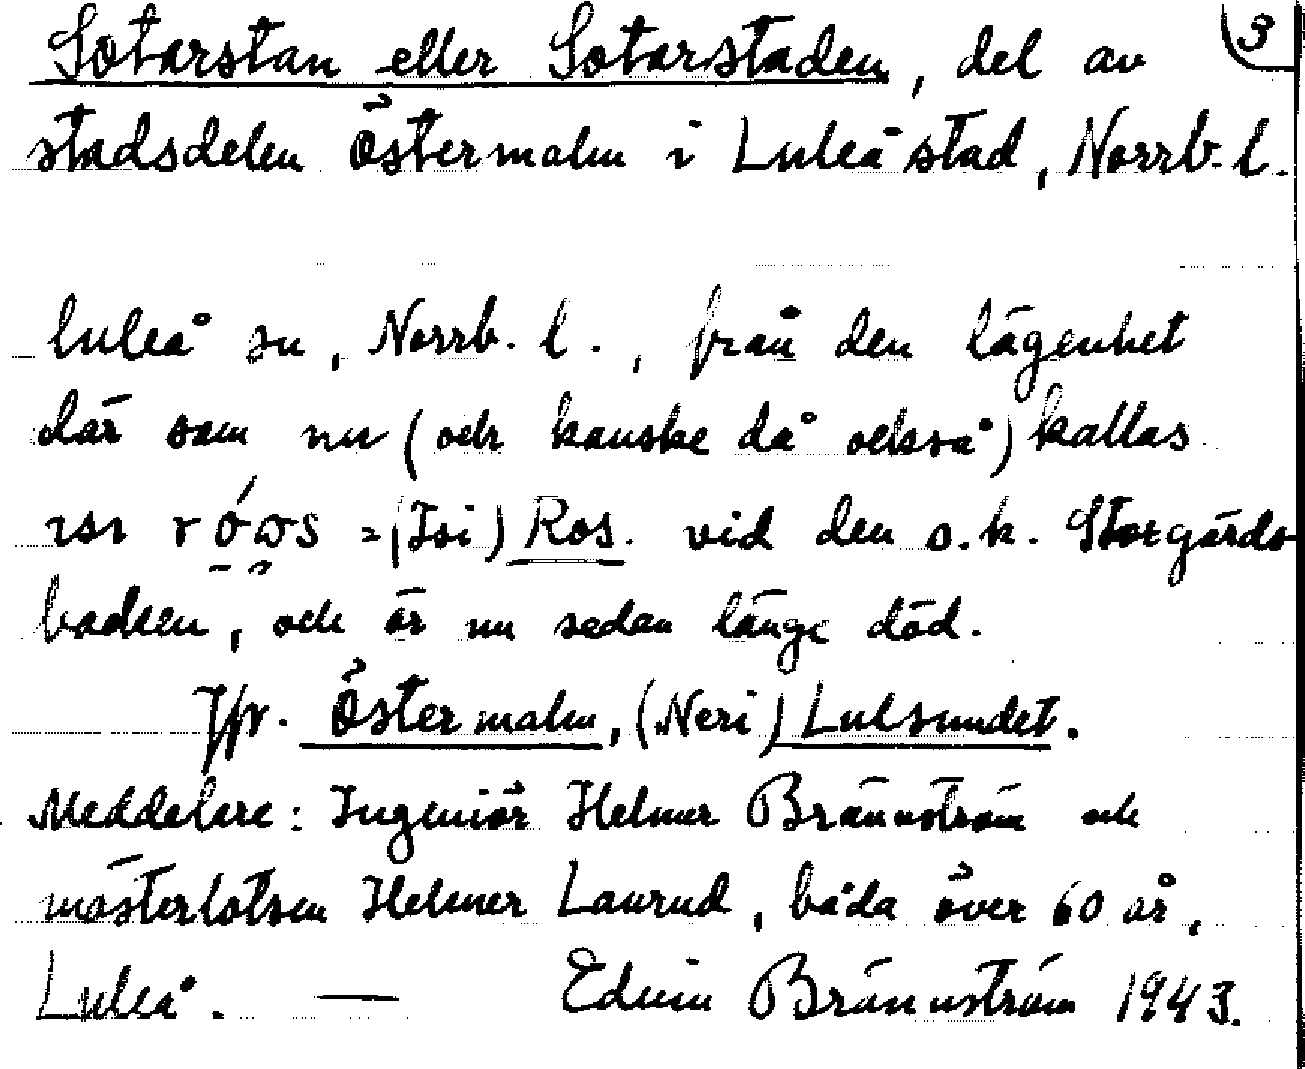 Sotarstan eller Sotarstaden, del av
3
stadsdelen Östermalm i Luleå stad, Norrb. l.
Luleå sn, Norrb. l., från den lägenhet
där som nu (och kanske då också) kallas
=(Isi) Ros. vid den s.k. Storgårds-
backen, och är nu sedan länge död.
Jfr. Östermalm, (Neri) Lulsundet.
Meddelare: Ingeniör Helmer Brännström och
mästerlotsen Helmer Laurud, båda över 60 år,
Luleå. — Edvin Brännström 1943.